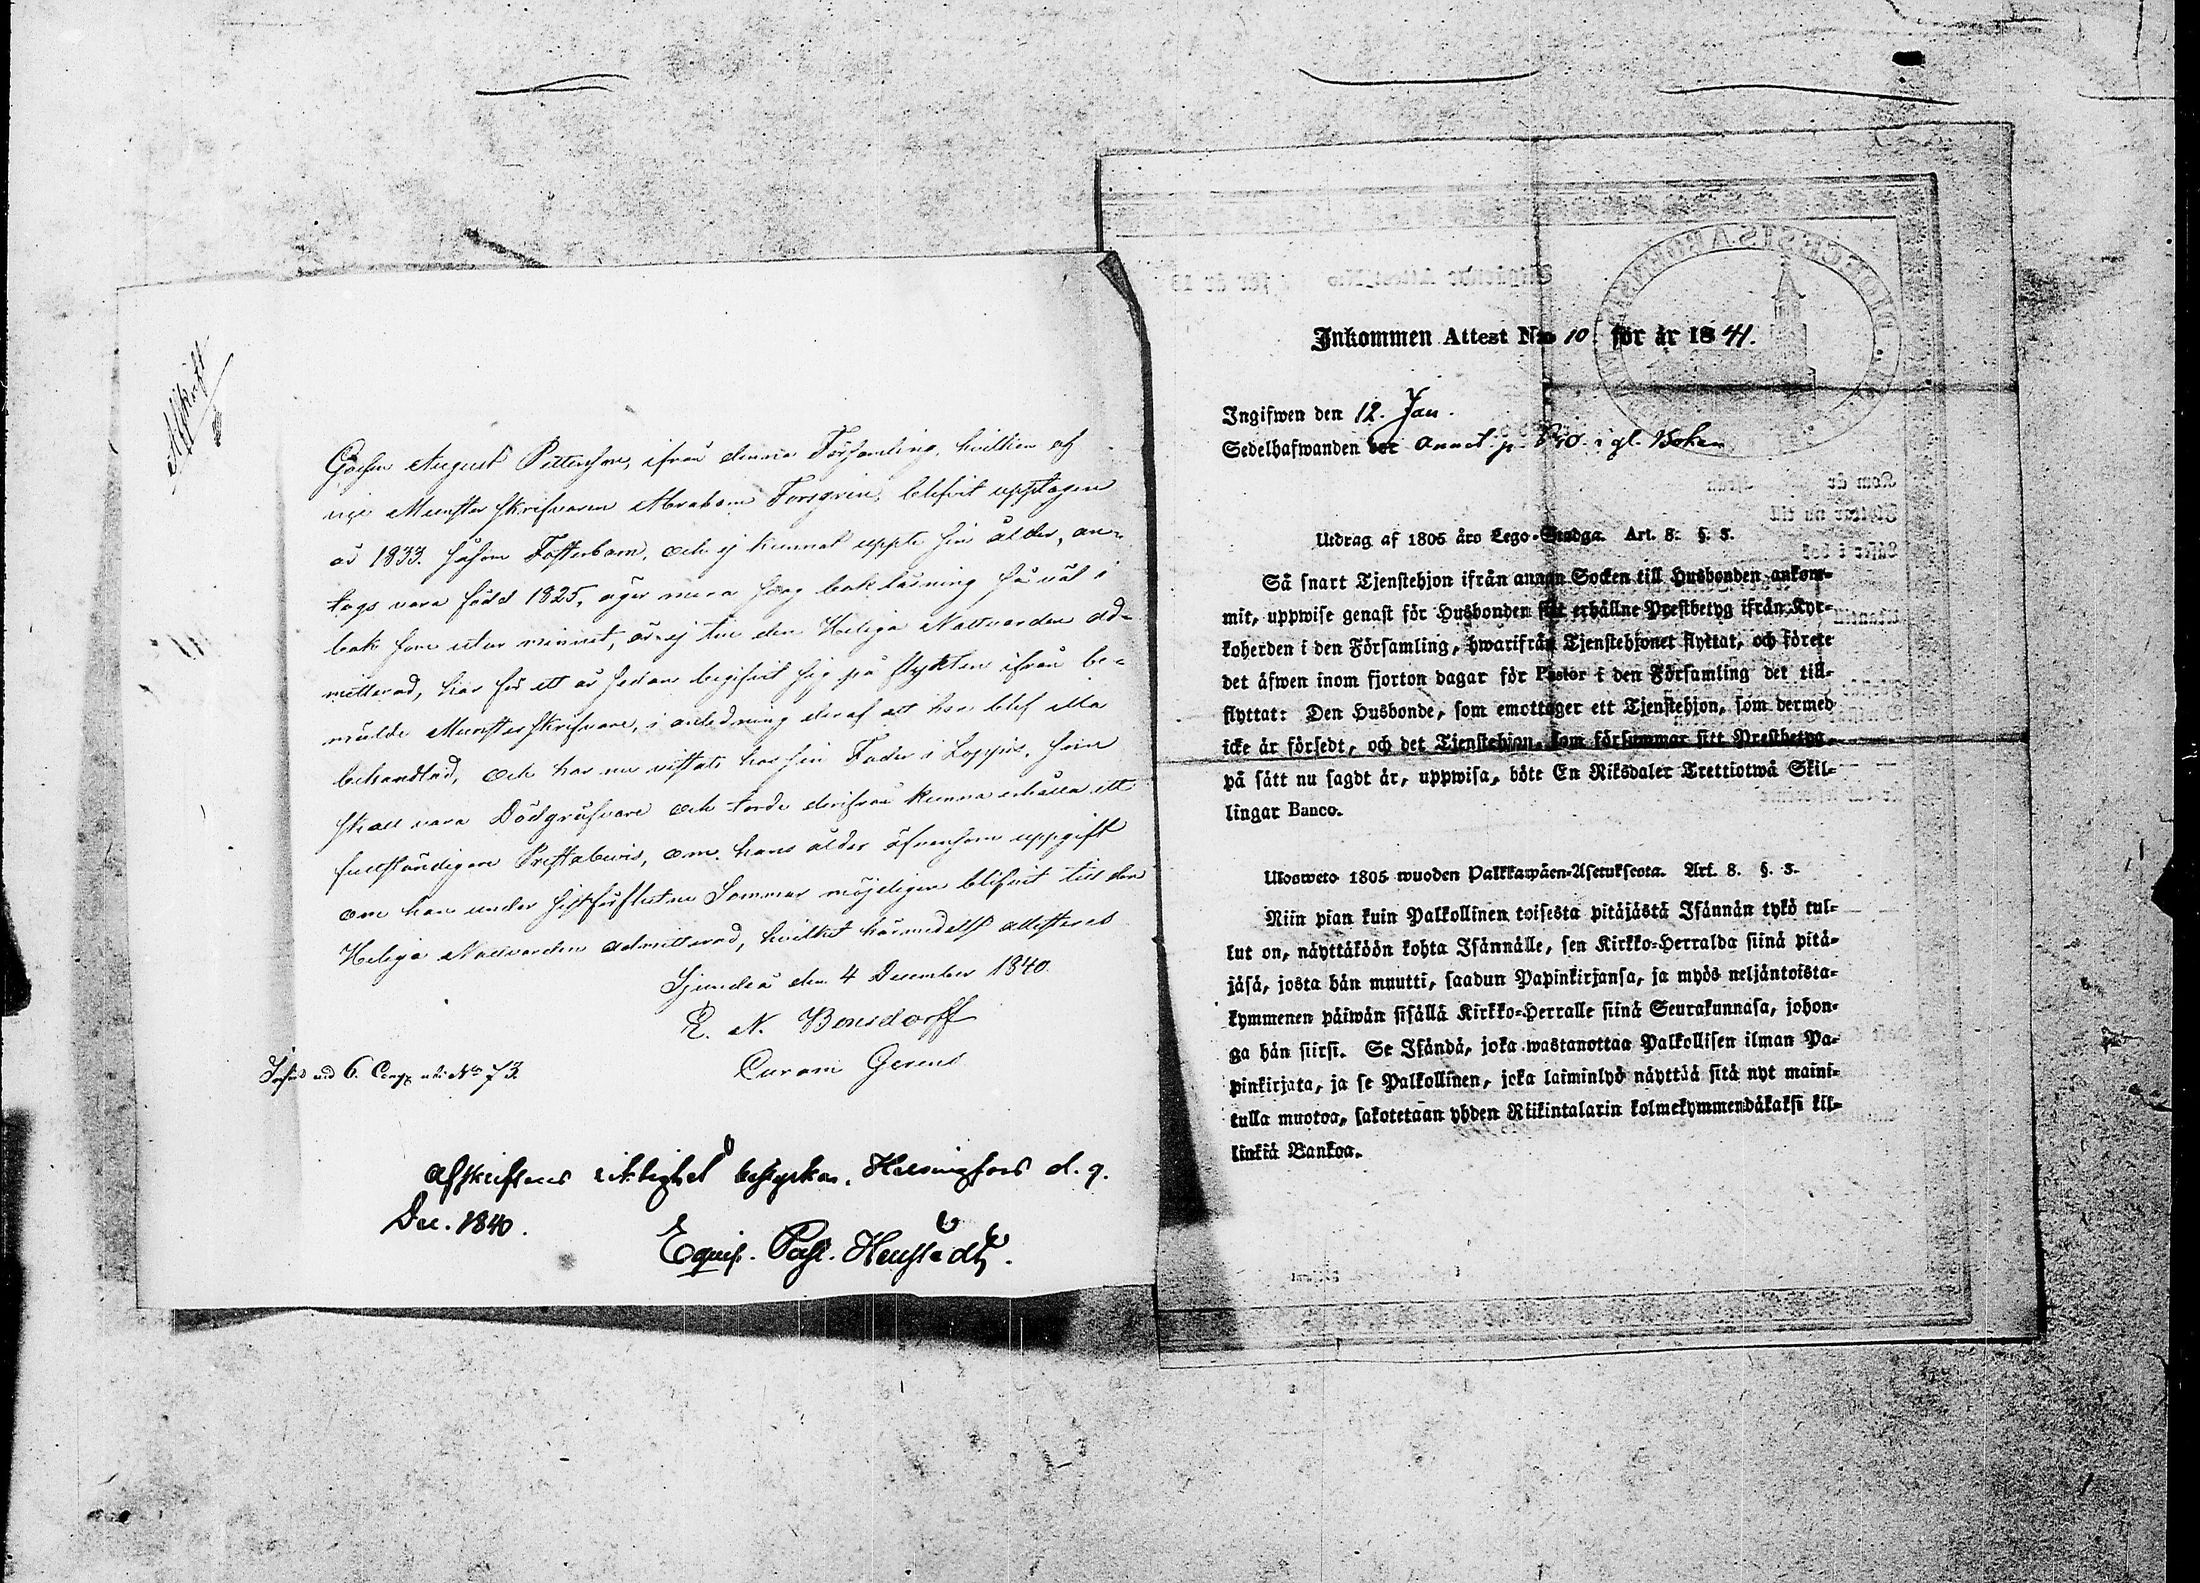 Afskrift
Gossen August Pettersson, ifrån denna Församling, hvilken af
nye Munsterskrifvaren Abraham Forsgren, blifvit upptagen
år 1833. såsom Fosterbarn, och ej kunnat uppte sin ålder, an-
tags vara född 1825, äger mera svag bokläsning så väl i
bok som utur minnet, är ej till den Heliga Nattvarden ad-
mitterad, har för ett år sedan begifvit sig på flykten ifrån be-
mälde Munsterskrifvare, i anledning deraf att han blef illa
behandlad, och har nu vistats hos sin Fader i Loppis, som
skall vara Dödgräfvare och torde derifrån kunna erhålla ett
fullständigare Prestabevis, om hans ålder äfvensom uppgift
om han under sistförflutne Sommar möjeligen blifvit till den
Heliga Nattvarden admitterad, hvilket härmedelst attesteras
Sjundeå den 4 December 1840.
E. N. Bonsdorff
Curam Gerens
6. Comp. N:o 73.
Afskriftens riktighet bestyrkes. Helsingfors d. 9.
Dec. 1840.
Inkommen Attest N:o 10. för år 1841.
Ingifwen den 12. Jan.
Sedelhafwanden
Utdrag af 1805 års Lego-Stadga. Art. 8. §. 3.
Så snart Tjenstehjon ifrån annan Socken till Husbonden ankom-
mit, uppwise genast för Husbonden sitt erhållne Prestbetyg ifrån Kyr-
koherden i den Församling, hwarifrån Tjenstehjonet flyttat, och förete
det äfwen inom fjorton dagar för Pastor i den Församling det till-
flyttat: Den Husbonde, som emottager ett Tjenstehjon, som dermed
icke är försedt, och det Tjenstehjon, som försummar sitt Prestbetyg,
på sätt nu sagdt är, uppwisa, böte En Riksdaler Trettiotwå Skil-
lingar Banco.
Ulosweto 1805 wuoden Palkkawäen-Asetuksesta. Art. 8. §. 3.
Niin pian kuin Palkollinen toisesta pitäjästä Isännän tykö tul-
lut on, näyttäköön kohta Isännälle, sen Kirkko-Herralda siinä pitä-
jäsä, josta hän muutti, saadun Papinkirjansa, ja myös neljäntoista-
kymmenen päiwän sisällä Kirkko-Herralle siinä Seurakunnasa, johon-
ga hän siirsi. Se Isändä, joka wastanottaa Palkollisen ilman Pa-
pinkirjata, ja se Palkollinen, joka laiminlyö näyttää sitä nyt maini-
tulla muotoa, sakotetaan yhden Riikintalarin kolmekymmendäkaksi kil-
linkiä Bankoa.